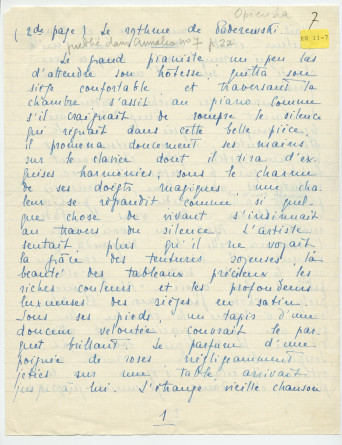 Opieńska
7
ER II-7
(2de page) Le rythme de Paderewski.
publié dans Annales no 7 p. 22
Le grand pianiste un peu las
d'attendre son hôtesse quitta son
siège confortable et traversant la
chambre s'assit au piano comme
s'il craignait de rompre le silence
qui régnait dans cette belle pièce,
il promena doucement ses mains
sur le clavier dont il tira d'ex
quises harmonies; sous le charme
de ses doigts magiques, une cha
leur se répandit comme si quel-
que chose de vivant s'insinuait
au travers du silence. L'artiste
sentait plus qu'il ne voyait
la grâce des tentures soyeuses, la
beauté des tableaux précieux, les
riches couleurs et les profondeurs
luxueuses des sièges en satin.
Sous ses pieds, un tapis d'une
douceur veloutée couvrait le par
quet brillant. Le parfum d'une
poignée de roses négligemment
jetées sur une table arrivait
jusqu'à lui. L'étrange vieille chanson
1